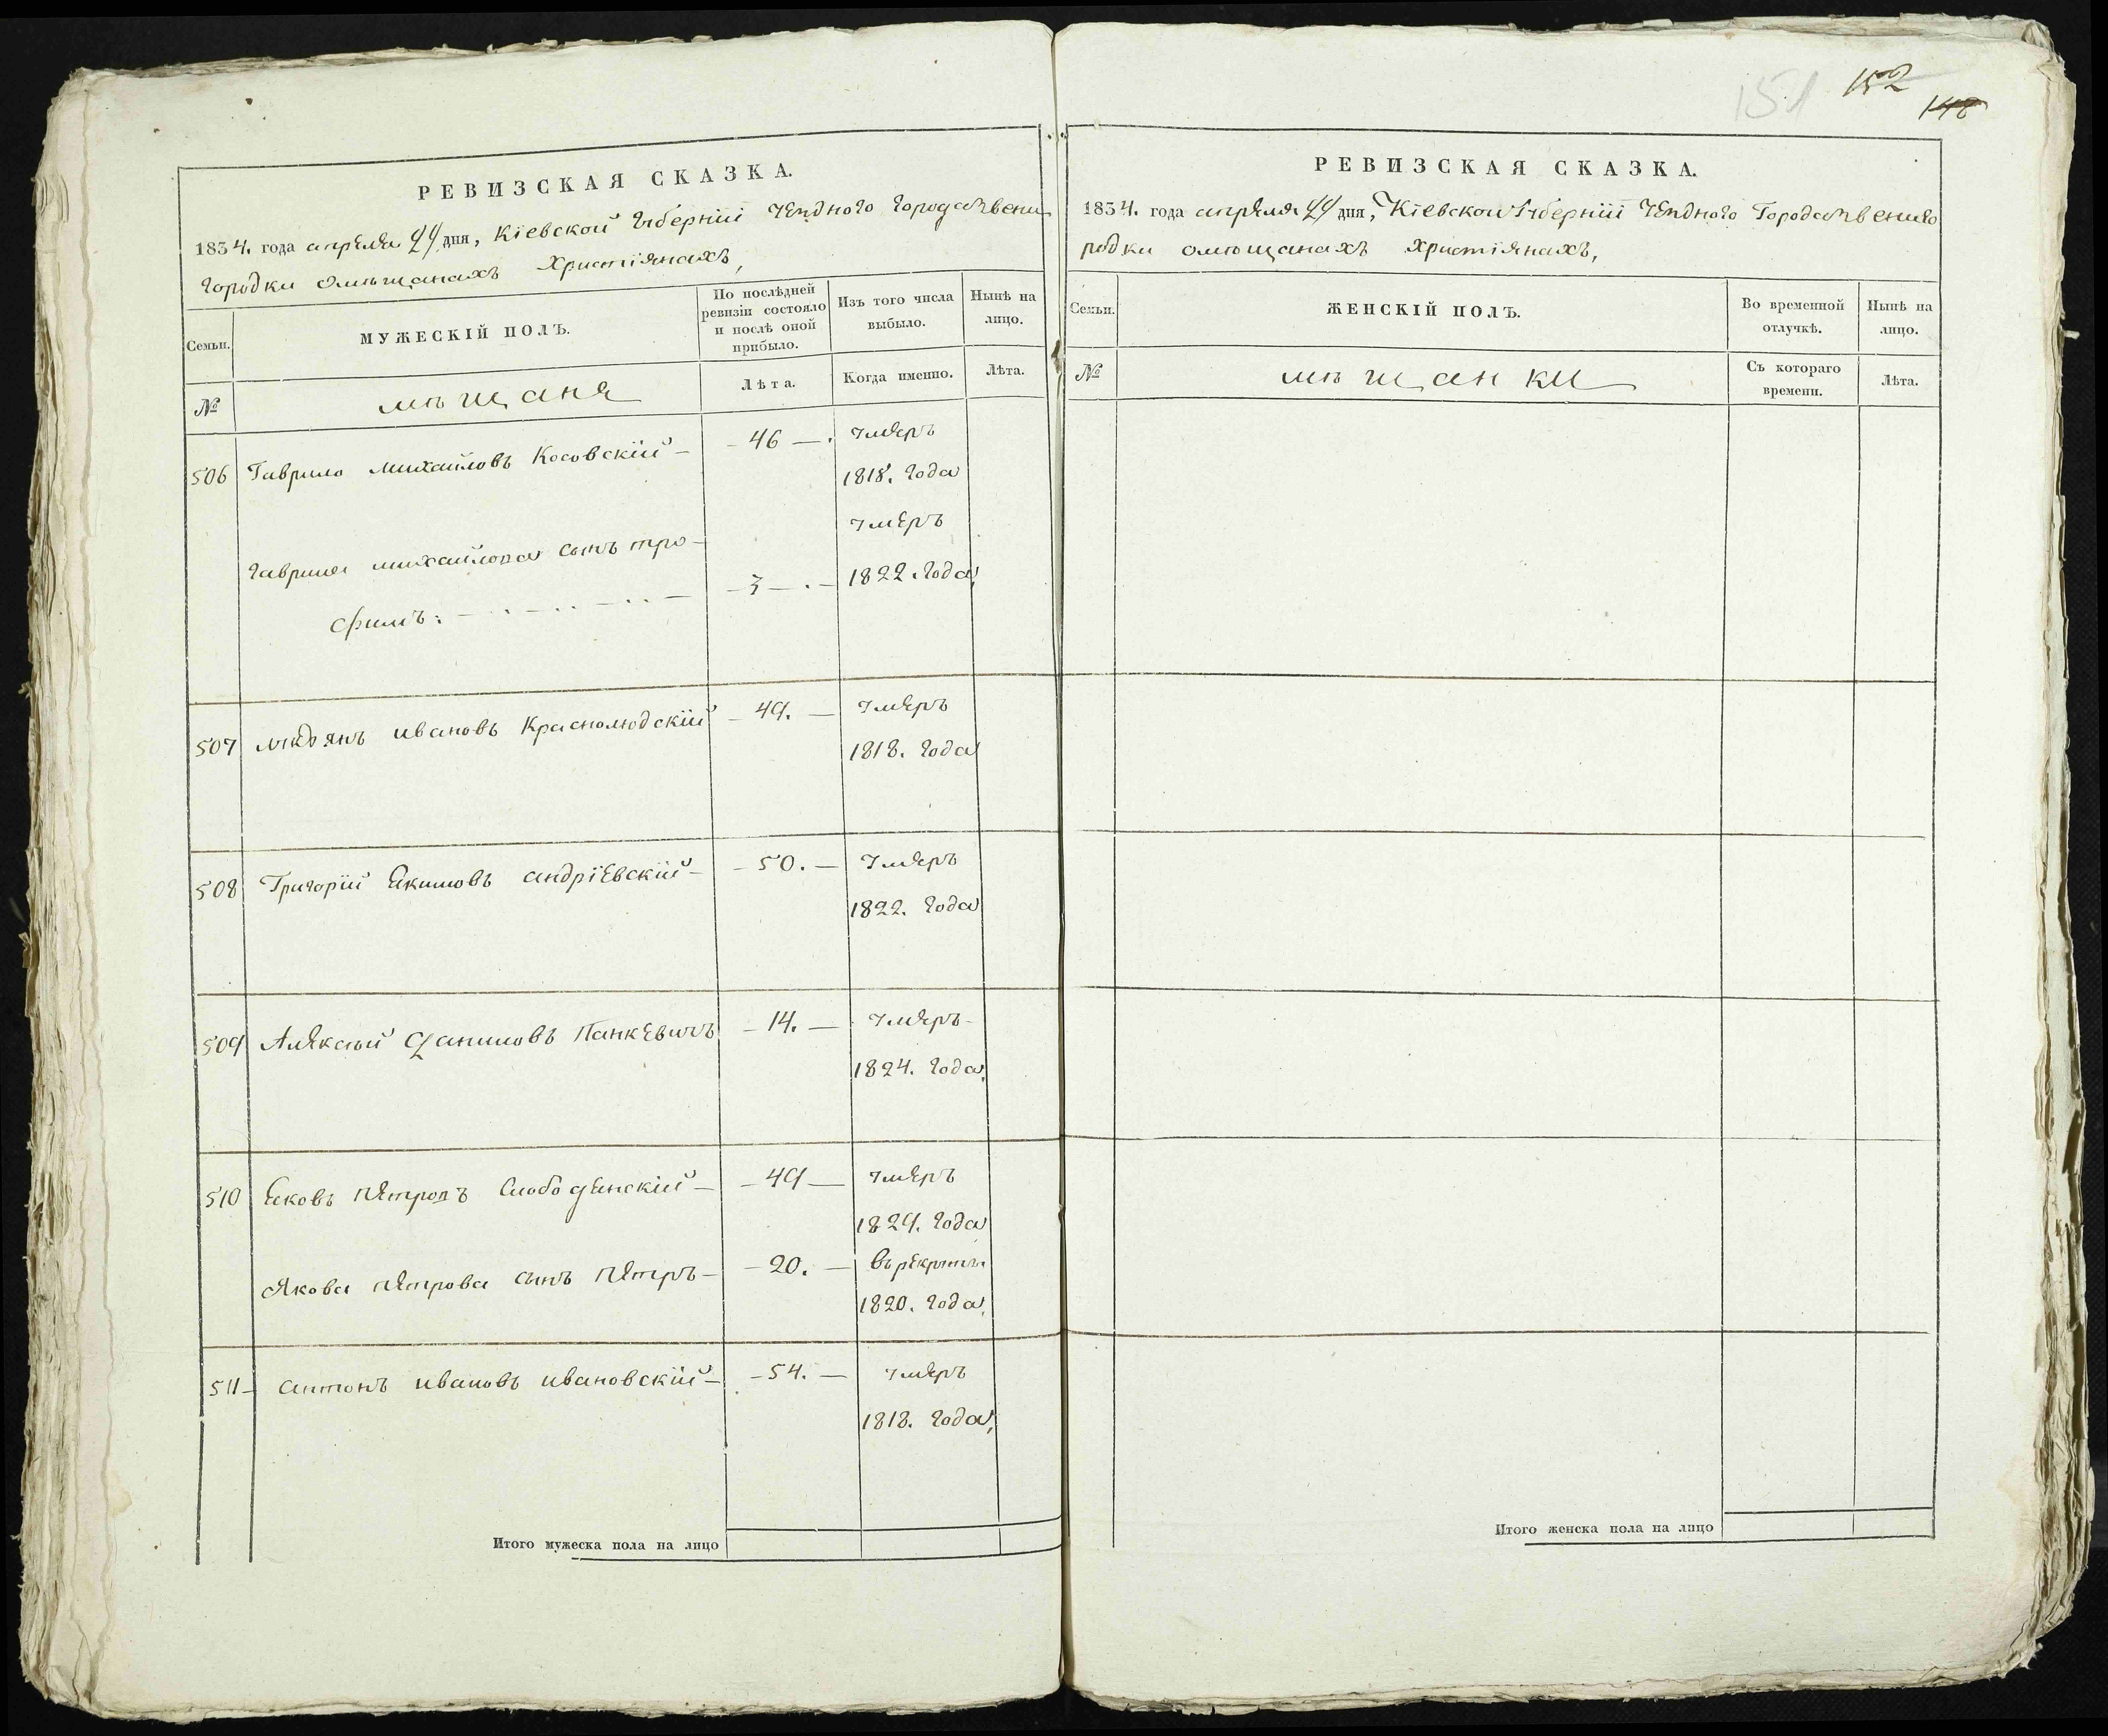 151 152
148
РЕВИЗСКАЯ СКАЗКА.
1834. года апреля 24 дня, Кіевской Губерніи Уезднаго Города Звени
городки омещанахъ христіянахъ,
Семьи.
МУЖЕСКІЙ ПОЛЪ.
По послѣдней ревизіи состояло и послѣ оной прибыло.
Изъ того числа выбыло.
Нынѣ на лицо.
№
мещаня
Лѣта.
Когда именно.
Лѣта.
506 Гаврило Михайловъ Косовскій — 46 — умеръ
1818. года
Гаврила михайлова сынъ тро-
фимъ: — 3 — умеръ
1822. года
507 ивановъ Краснолюдскій — 49. — умеръ
1818. года
508 Григорій Екимовъ андріевскій — 50. — умеръ
1822. года
509 Алексѣй Даниловъ Панкевичъ — 14. — умеръ
1824. года,
510 Яковъ петровъ Слободенскій — 49 — умеръ
1829. года
Якова петрова сынъ петръ — 20. — в рекруты
1820. года,
511 — антонъ ивановъ ивановскій — 54. — умеръ
1818. года,
Итого мужеска пола на лицо
РЕВИЗСКАЯ СКАЗКА.
1834. года апреля 24 дня, Кіевской Губерніи Уезднаго Города Звениго
родки омещанахъ христіянахъ,
Семьи.
ЖЕНСКІЙ ПОЛЪ.
Во временной отлучкѣ.
Нынѣ на лицо.
№
мещанки
Съ котораго времени.
Лѣта.
Итого женска пола на лицо